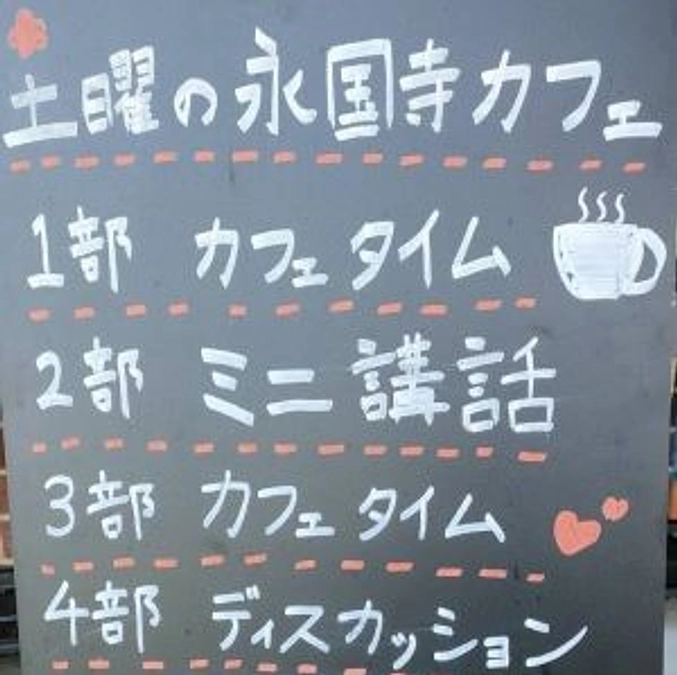 土曜の永国寺カフェ
1部 カフェタイム
2部 ミニ講話
3部 カフェタイム
4部 ディスカッション